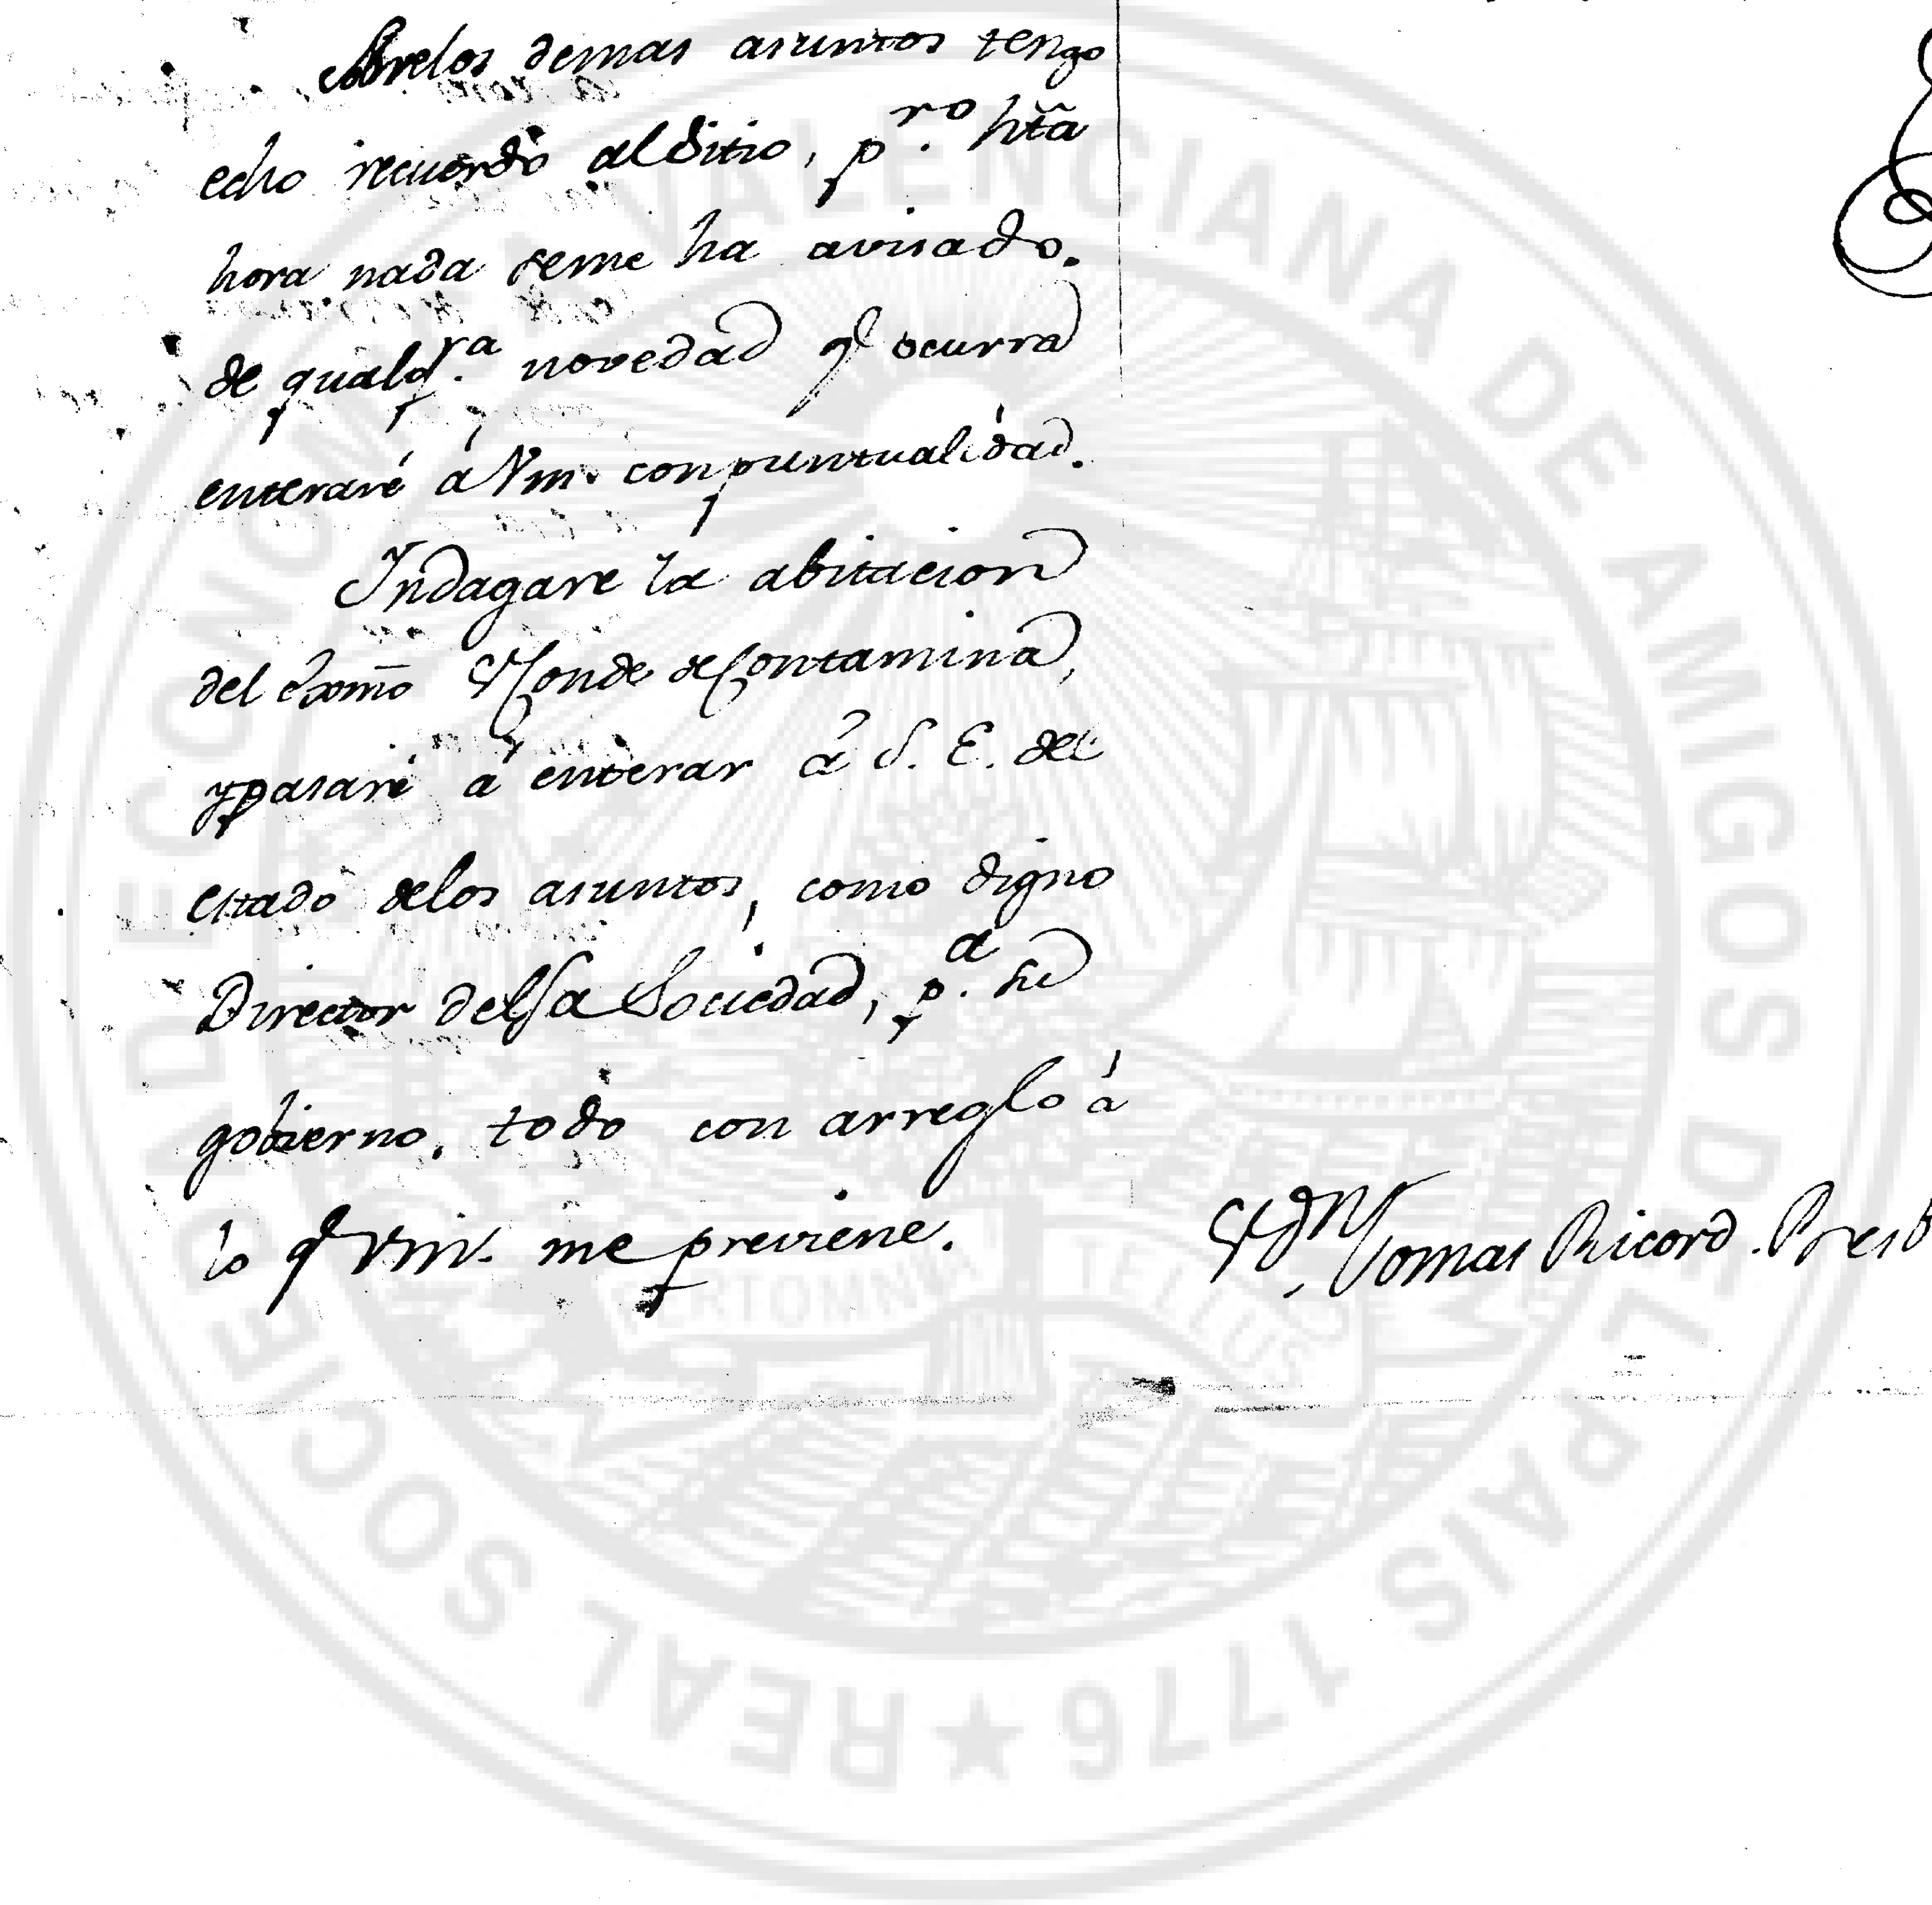 Sobrelos demas asuntos tengo
echo recuerdo alSitio, p.ro hta
hora nada seme ha avisado.
de qualq.ra novedad q ocurra
enteraré á Vm. con puntualidad.
Indagare la abitacion
del Exmo Conde de Contamina,
y pasaré á enterar á S. E. del
estado delos asuntos, como digno
Director della Sociedad, p.a su
gobierno. todo con arreglo á
lo q Vm. me previene.
S.r D.n Tomas Ricord. Presb
REAL SOCIEDAD ECONOMICA VALENCIANA DE AMIGOS DEL PAIS 1776